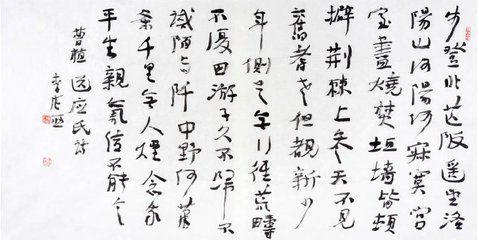 步登北芒阪遥望洛
陽山洛陽何寂寞宮
室盡燒焚垣墙皆頓
擗荆棘上参天不見
舊耆老但覩新少
年側足无行徑荒疇
不復田游子久不歸不
識陌与阡中野何蕭
条千里无人煙念我
平生親氣結不能言
曹植 送應氏詩